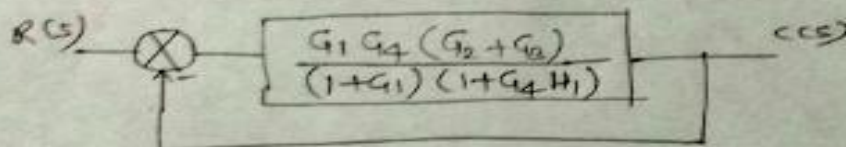 R(S)
G1 G4 (G2 + G3)
(1+G1) (1+G4 H1)
C(S)
-